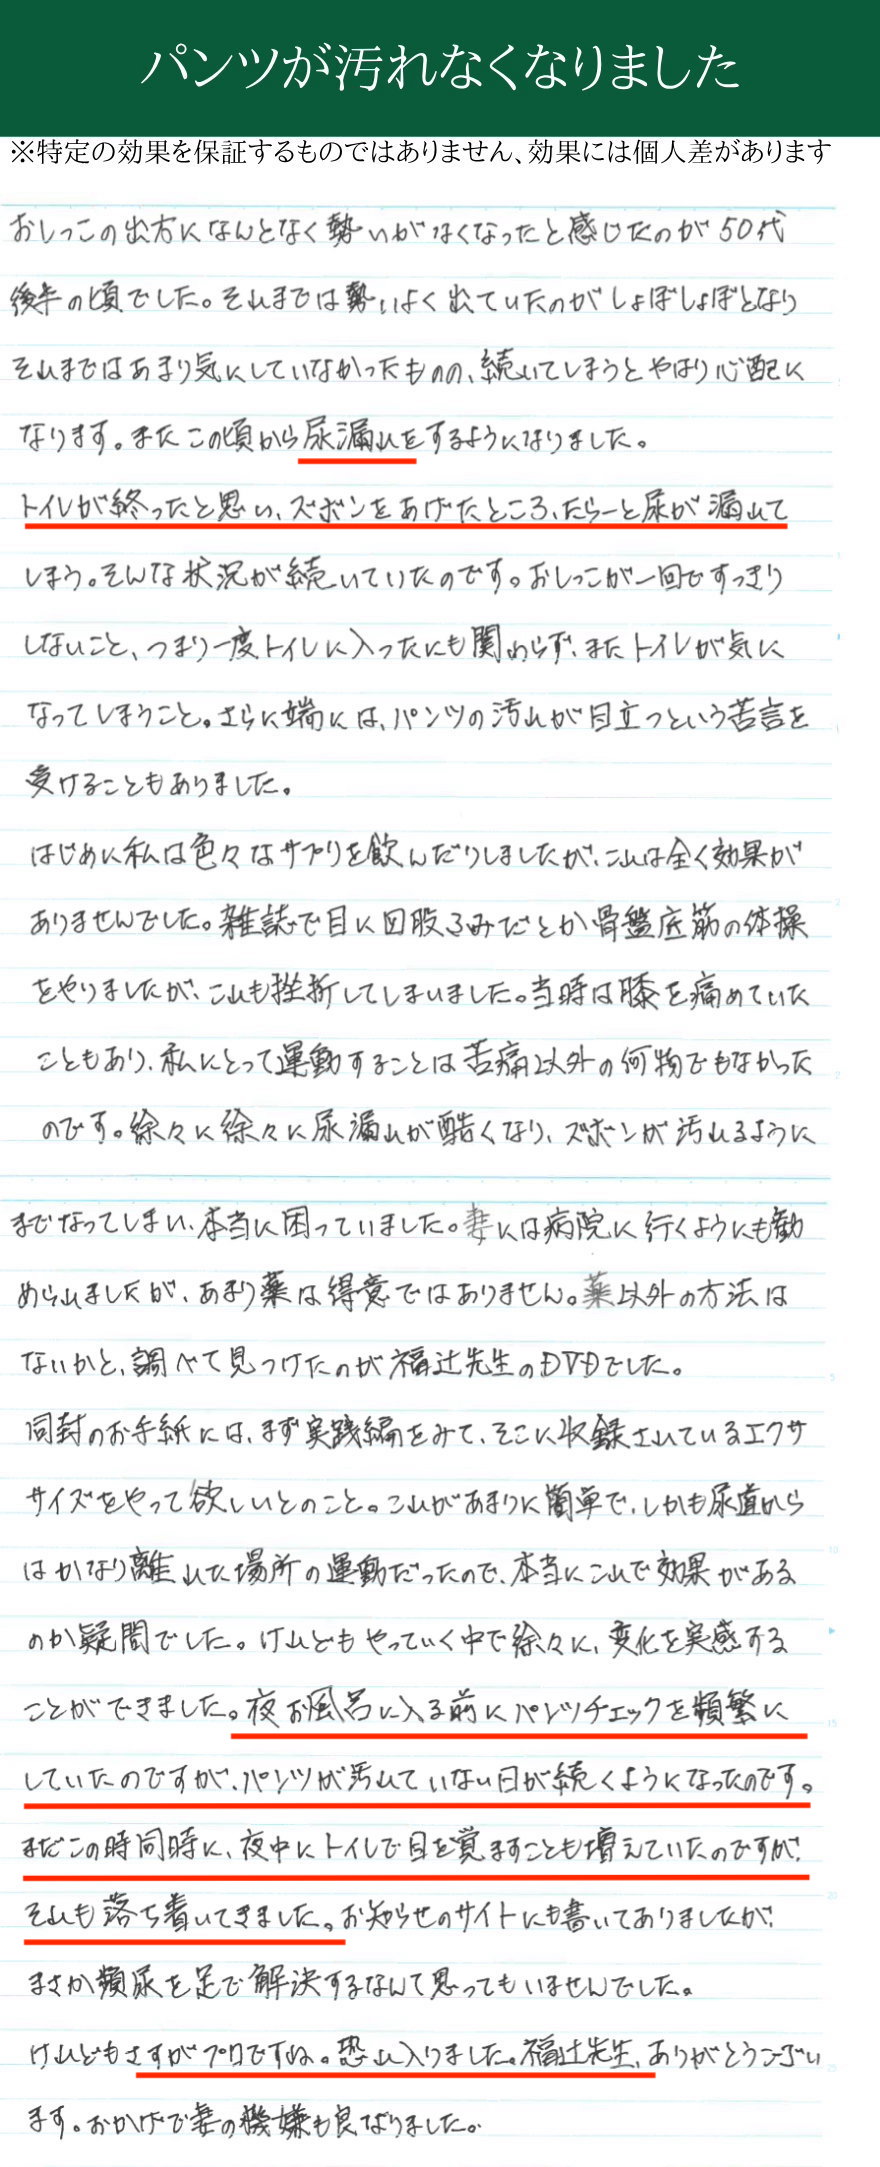 パンツが汚れなくなりました
※特定の効果を保証するものではありません、効果には個人差があります
おしっこの出方になんとなく勢いがなくなったと感じたのが50代
後半の頃でした。それまでは勢いよく出ていたのがしょぼしょぼとなり
それまではあまり気にしていなかったものの、続いてしまうとやはり心配に
なります。またこの頃から尿漏れをするようになりました。
トイレが終ったと思い、ズボンをあげたところ、たらーと尿が漏れて
しまう。そんな状況が続いていたのです。おしっこが一回ですっきり
しないこと、つまり一度トイレに入ったにも関わらず、またトイレが気に
なってしまうこと。さらに端には、パンツの汚れが目立つという苦言を
受けることもありました。
はじめに私は色々なサプリを飲んだりしましたが、これは全く効果が
ありませんでした。雑誌で目に回股るみだとか骨盤底筋の体操
をやりましたが、これも挫折してしまいました。当時は膝を痛めていた
こともあり、私にとって運動することは苦痛以外の何物でもなかった
のです。徐々に徐々に尿漏れが酷くなり、ズボンが汚れるように
までなってしまい、本当に困っていました。妻には病院に行くようにも勧
められましたが、あまり薬は得意ではありません。薬以外の方法は
ないかと、調べて見つけたのが福辻先生のDVDでした。
同封のお手紙には、まず実践編をみて、そこに収録されているエクサ
サイズをやって欲しいとのこと。これがあまりに簡単で、しかも尿道から
はかなり離れた場所の運動だったので、本当にこれで効果がある
のか疑問でした。けれどもやっていく中で徐々に、変化を実感する
ことができました。夜お風呂に入る前にパンツチェックを頻繁に
していたのですが、パンツが汚れていない日が続くようになったのです。
まだこの時同時に、夜中にトイレで目を覚ますことも増えていたのですが、
それも落ち着いてきました。お知らせのサイトにも書いてありましたが、
まさか頻尿を足で解決するなんて思ってもいませんでした。
けれどもさすがプロですね。恐れ入りました。福辻先生、ありがとうござい
ます。おかげで妻の機嫌も良なりました。